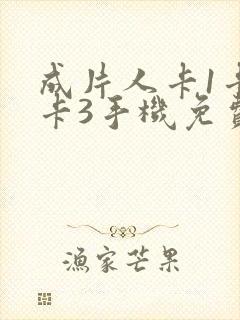 成片人卡1卡
卡3手機免費
漁家芒果